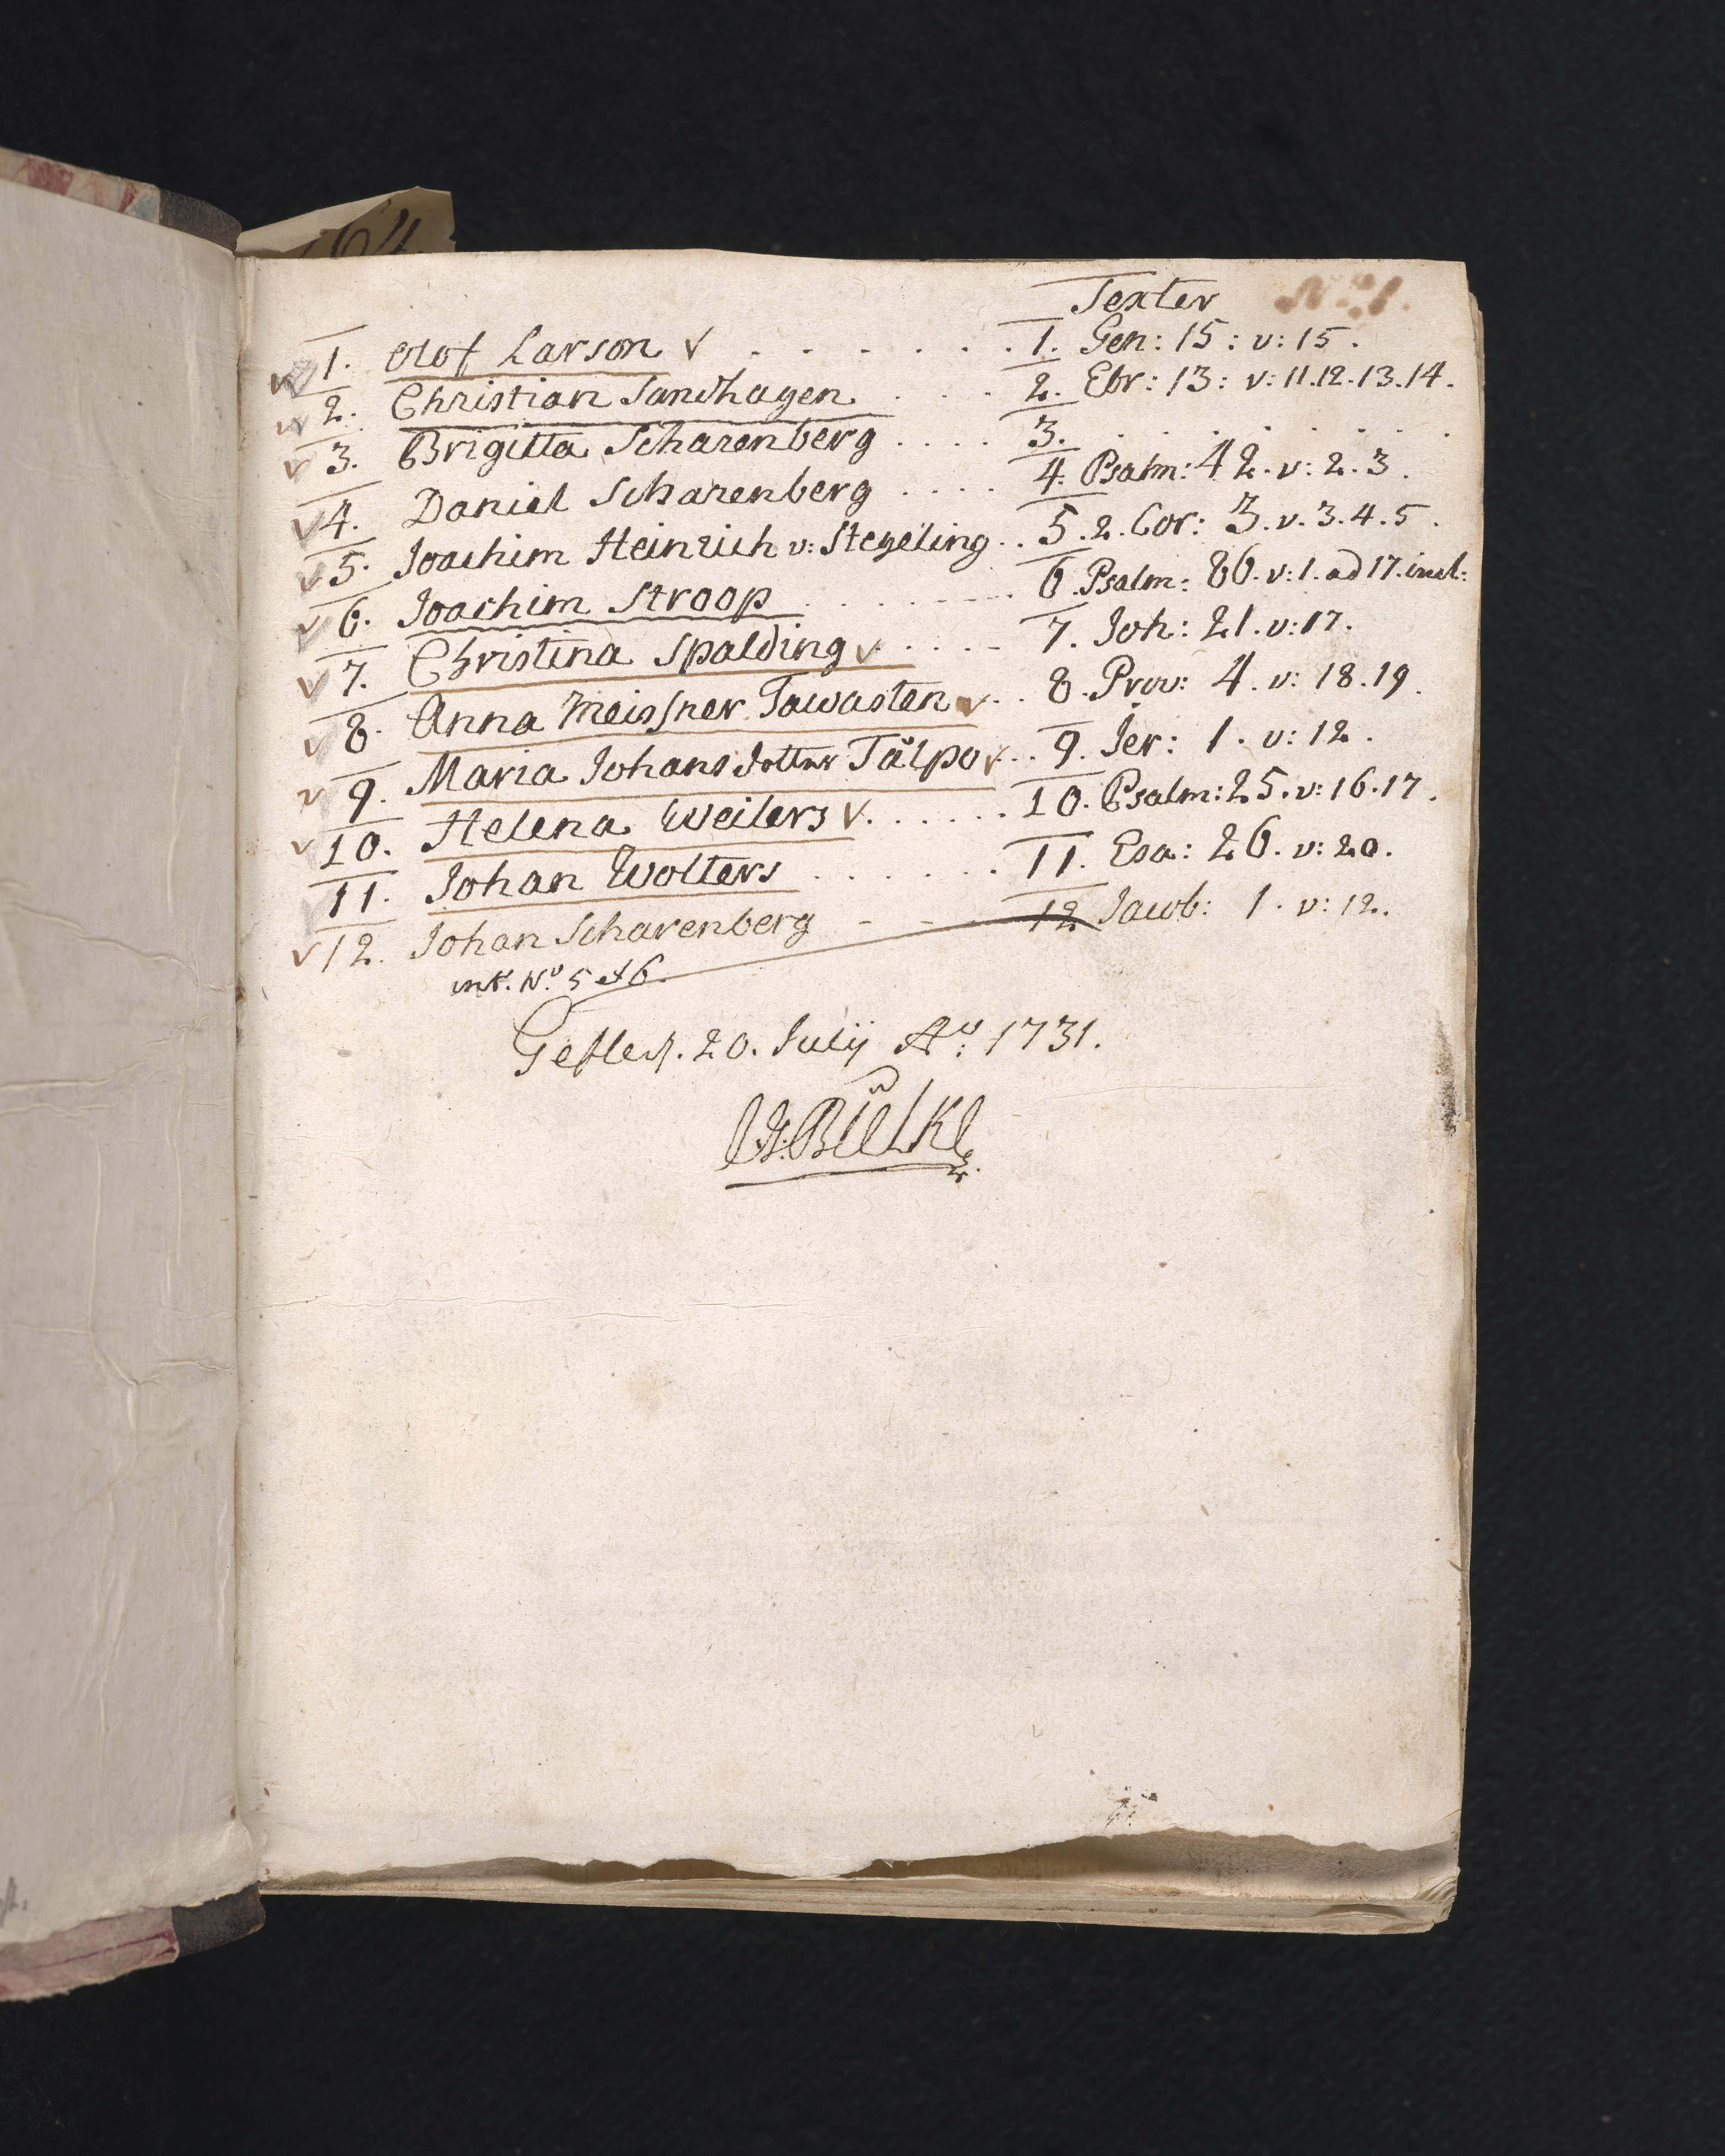 Texter No: 1.
1. Olof Larson √ . . . . . . . 1. Gen: 15: v: 15.
2. Christian Sandhagen . . . 2. Ebr: 13: v: 11.12.13.14.
3. Brigitta Scharenberg . . . . 3. . . . . . . .
4. Daniel Scharenberg . . . . 4. Psalm: 42. v: 2. 3.
5. Joachim Heinrich v: Stegeling . . 5. 2. Cor: 3. v. 3. 4. 5.
6. Joachim Stroop . . . . . 6. Psalm: 86. v: 1. ad 17. incl:
7. Christina Spalding √ . . . . 7. Joh: 21. v: 17.
8. Anna Meissner Tawasten √ . . 8. Prov: 4. v: 18. 19.
9. Maria Johans dotter Tålpo √ . . 9. Jer: 1. v: 12.
10. Helena Weilers √ . . . . . . 10. Psalm: 25. v: 16. 17.
11. Johan Wolters . . . . . . . 11. Esa: 26. v: 20.
12. Johan Scharenberg - - 12 Jacob: 1. v: 12.
No 5 & 6
20. Julij Ao: 1731.
Bielke